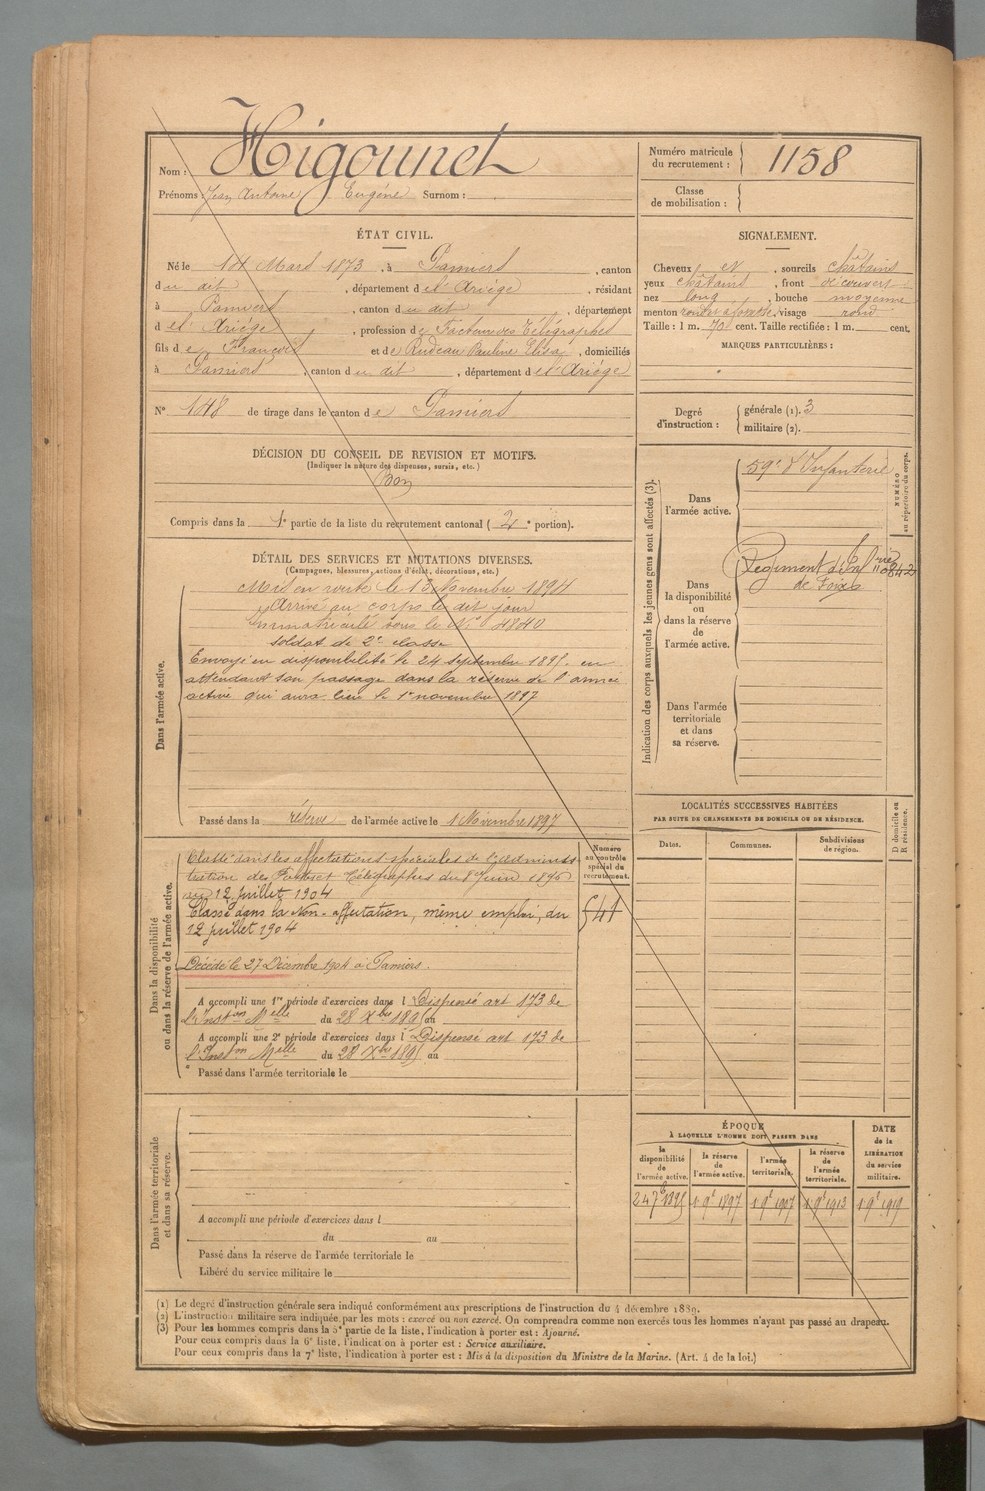 Nom : Higounet
Prénoms Jean Antoine Eugène Surnom :
Numéro matricule du recrutement : 1158
Classe de mobilisation :
ÉTAT CIVIL.
Né le Mars 1873, à Pamiers, canton
du dit, département de l'Ariège, résidant
à Pamiers, canton du dit, département
de l'Ariège, profession de Facteur des Télégraphes
fils de François et de Rudeau Pauline Elisa, domiciliés
à Pamiers, canton du dit, département de l'Ariège
N° 148 de tirage dans le canton de Pamiers
SIGNALEMENT.
Cheveux et, sourcils châtains
yeux châtains, front découvert
nez long, bouche moyenne
menton rond à fossette, visage rond
Taille : 1 m. 70 cent. Taille rectifiée : 1 m. cent.
MARQUES PARTICULIÈRES :
Degré d'instruction :
générale (1). 3
militaire (2).
DÉCISION DU CONSEIL DE REVISION ET MOTIFS.
(Indiquer la nature des dispenses, sursis, etc.)
Bon
Compris dans la 1e partie de la liste du recrutement cantonal (2e portion).
DÉTAIL DES SERVICES ET MUTATIONS DIVERSES.
(Campagnes, blessures, actions d'éclat, décorations, etc.)
Dans l'armée active.
Mis en route le 13 Novembre 1894
Arrivé au corps le dit jour
Immatriculé sous le N° 4840
soldat de 2e classe
Envoyé en disponibilité le 24 septembre 1895 en
attendant son passage dans la réserve de l'armée
active qui aura lieu le 1er novembre 1897
Passé dans la réserve de l'armée active le 1 Novembre 1897
Indication des corps auxquels les jeunes gens sont affectés (3).
NUMÉRO au répertoire du corps.
Dans l'armée active.
59e d'Infanterie
Dans la disponibilité ou dans la réserve de l'armée active.
Régiment d'Inf rie
de Foix
Dans l'armée territoriale et dans sa réserve.
LOCALITÉS SUCCESSIVES HABITÉES
PAR SUITE DE CHANGEMENTS DE DOMICILE OU DE RÉSIDENCE.
Dates.
Communes.
Subdivisions de région.
D domicile ou R résidence.
Dans la disponibilité ou dans la réserve de l'armée active.
Numéro au contrôle spécial du recrutement.
Classé dans les affectations spéciales de l'Adminis
tration des Postes et Télégraphes du 8 Juin 1896
au 12 juillet 1904
Classé dans la Non-affectation, même emploi, du
12 juillet 1904
541
Décédé le 27 Décembre 1904 à Pamiers.
A accompli une 1re période d'exercices dans l Dispensé art 173 de
l'Inston Melle du 28 Xbre 1895 au
A accompli une 2e période d'exercices dans l Dispensé art 173 de
l'Inston Melle du 28 Xbre 1895 au
Passé dans l'armée territoriale le
ÉPOQUE
À LAQUELLE L'HOMME DOIT PASSER DANS
la disponibilité de l'armée active.
la réserve de l'armée active.
l'armée territoriale.
la réserve de l'armée territoriale.
DATE de la LIBÉRATION du service militaire.
24 7e 1895
1 9e 1897
1 9e 1907
1 9e 1913
1 9e 1919
Dans l'armée territoriale et dans sa réserve.
A accompli une période d'exercices dans l
du au
Passé dans la réserve de l'armée territoriale le
Libéré du service militaire le
(1) Le degré d'instruction générale sera indiqué conformément aux prescriptions de l'instruction du 4 décembre 1889.
(2) L'instruction militaire sera indiquée par les mots : exercé ou non exercé. On comprendra comme non exercés tous les hommes n'ayant pas passé au drapeau.
(3) Pour les hommes compris dans la 5e partie de la liste, l'indication à porter est : Ajourné.
Pour ceux compris dans la 6e liste, l'indication à porter est : Service auxiliaire.
Pour ceux compris dans la 7e liste, l'indication à porter est : Mis à la disposition du Ministre de la Marine. (Art. 4 de la loi.)